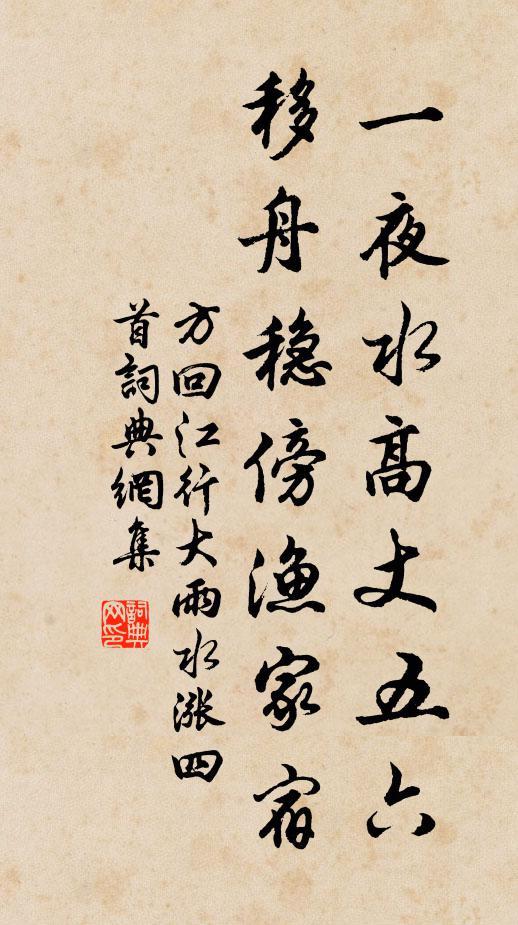 一夜水高丈五六
移舟穩傍漁家宿
方回江行大雨水漲四
首詞典網集
詞典
网印